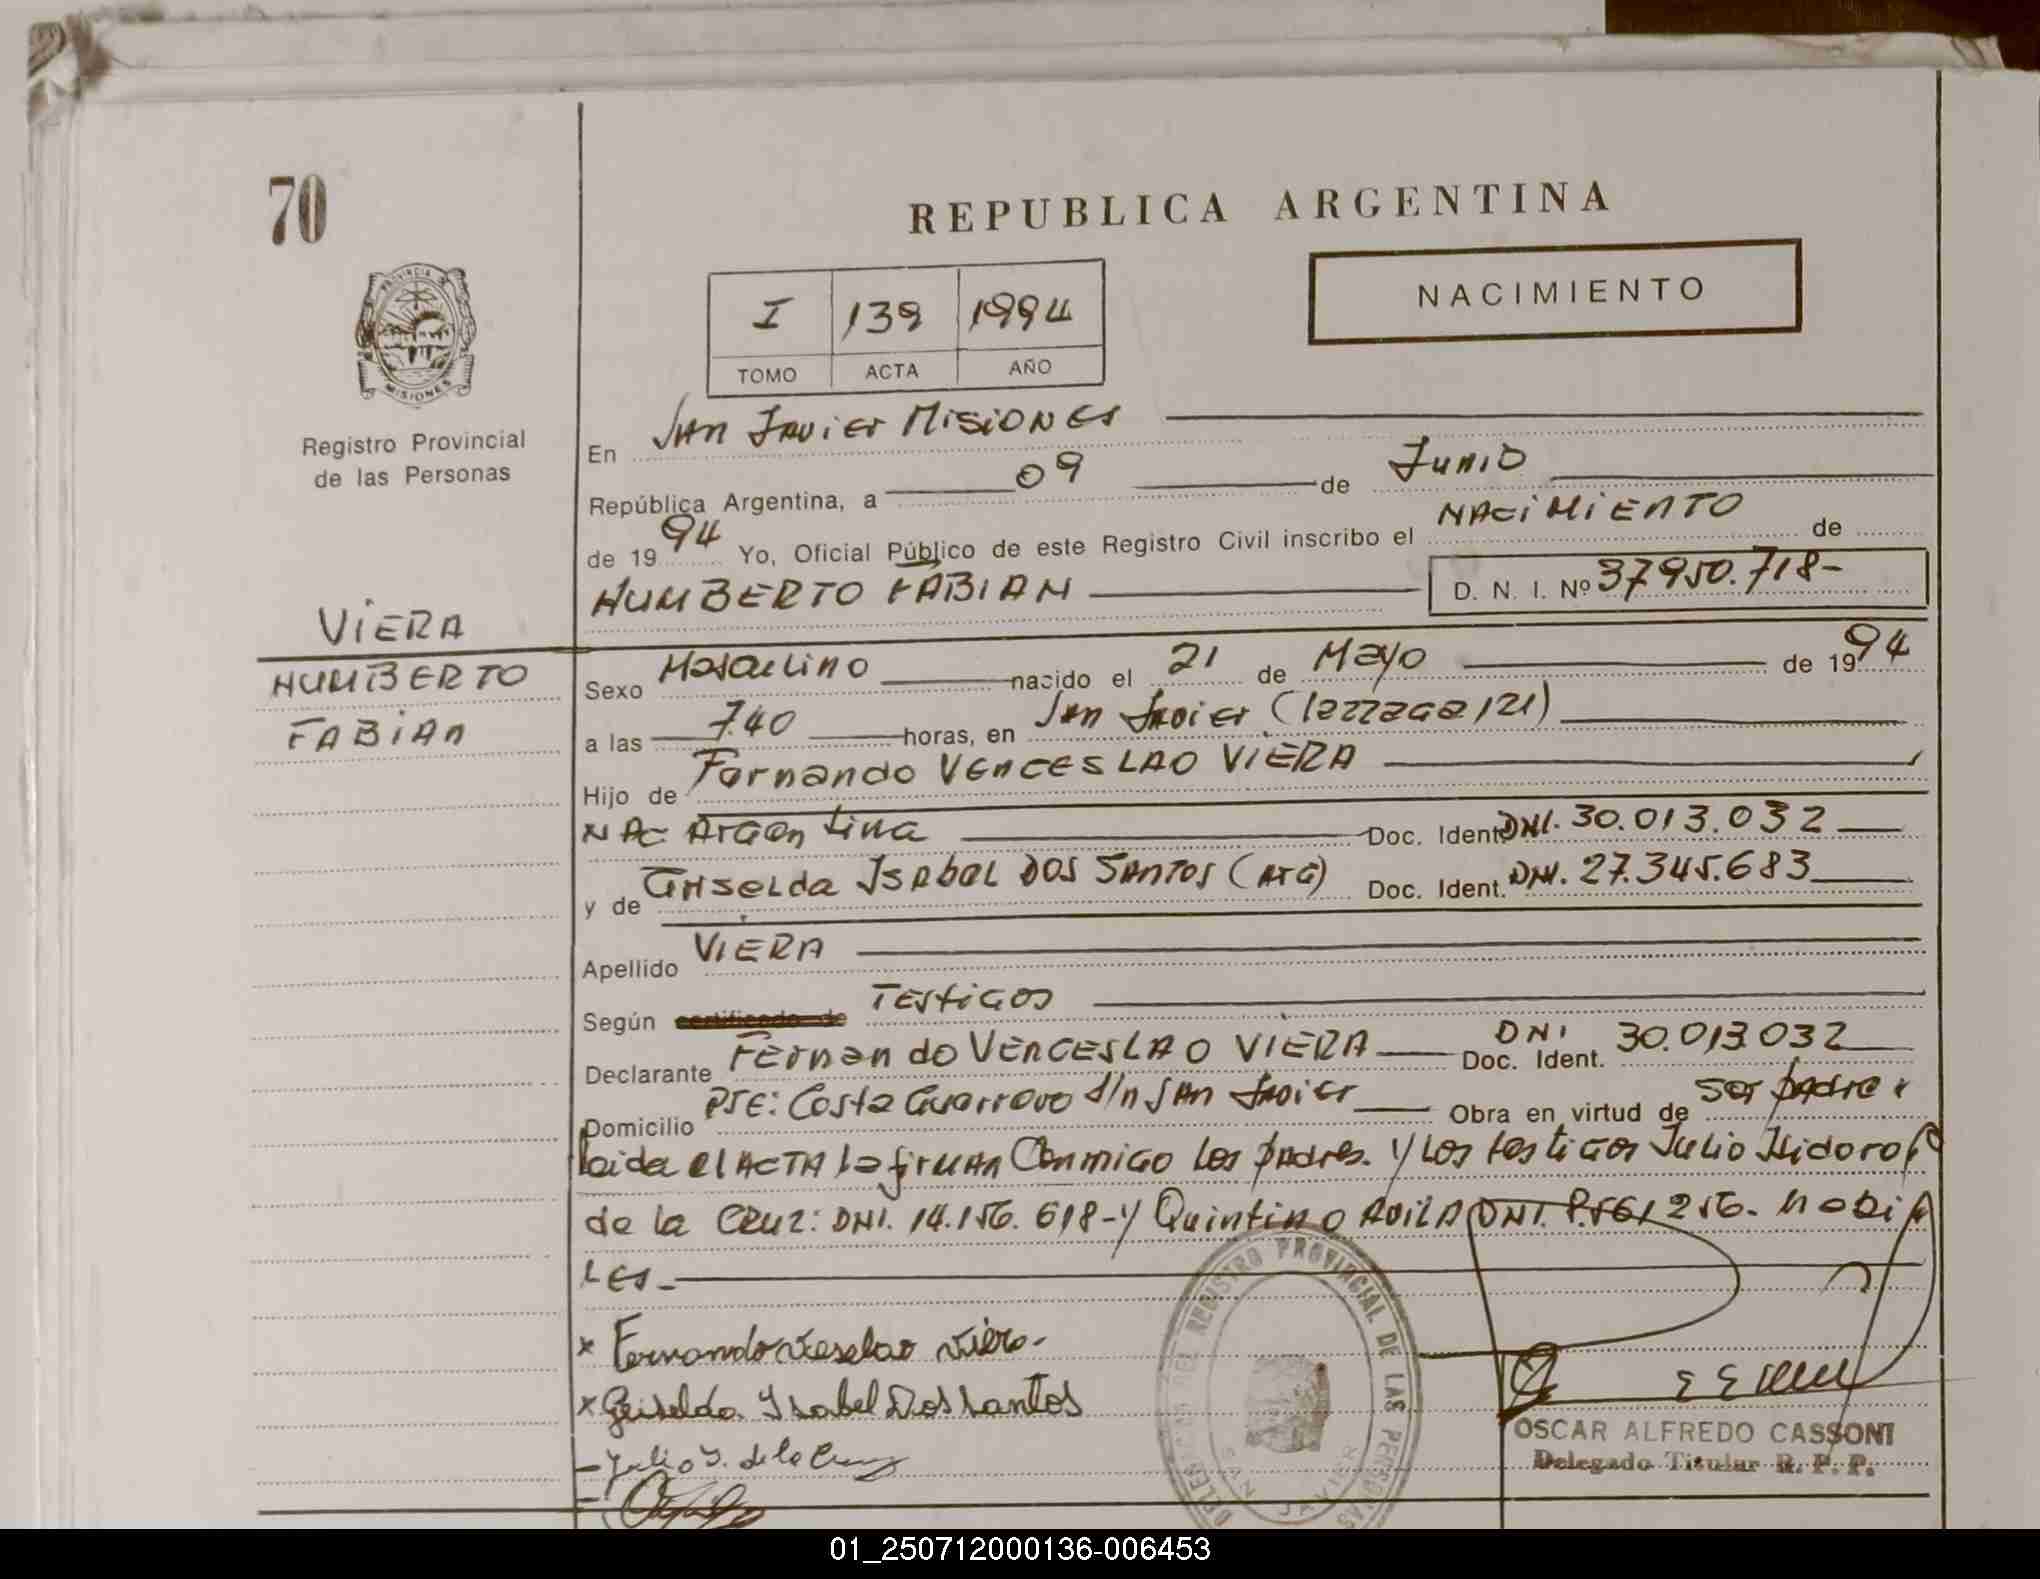 70
REPUBLICA ARGENTINA
NACIMIENTO
I 139 1994
TOMO ACTA AÑO
PROVINCIA DE
MISIONES
Registro Provincial
de las Personas
En San Javier Misiones
República Argentina, a 09 de Junio
de 1994 Yo, Oficial Público de este Registro Civil inscribo el NACIMIENTO de
HUMBERTO FABIAN D. N. I. Nº 37.950.718-
VIERA
HUMBERTO
FABIAN
Sexo Masculino nacido el 21 de Mayo de 1994
a las 7.40 horas, en San Javier (lazzaga 121)
Hijo de Fernando VENCESLAO VIERA
NAC Argentina Doc. Ident. DNI. 30.013.032
y de Griselda Isabel DOS SANTOS (ARG) Doc. Ident. DNI. 27.345.683
Apellido VIERA
Según certificado de Testigos
Declarante Fernando VENCESLAO VIERA Doc. Ident. DNI 30.013.032
Domicilio Pje: Costa Guarrero s/n San Javier Obra en virtud de ser padre
leida el ACTA la firman Conmigo los padres. Y los testigos Julio Isidoro
de la CRUZ: DNI. 14.156.618-y Quintino AVILA DNI. 8.561256. habi
les-
x Fernando Veseslao Viera-
x Griselda Isabel Dos santos
- Julio I. de la Cruz
DELEGACION DEL REGISTRO PROVINCIAL DE LAS PERSONAS
SAN JAVIER
OSCAR ALFREDO CASSONI
Delegado Titular R. P. P.
01_250712000136-006453